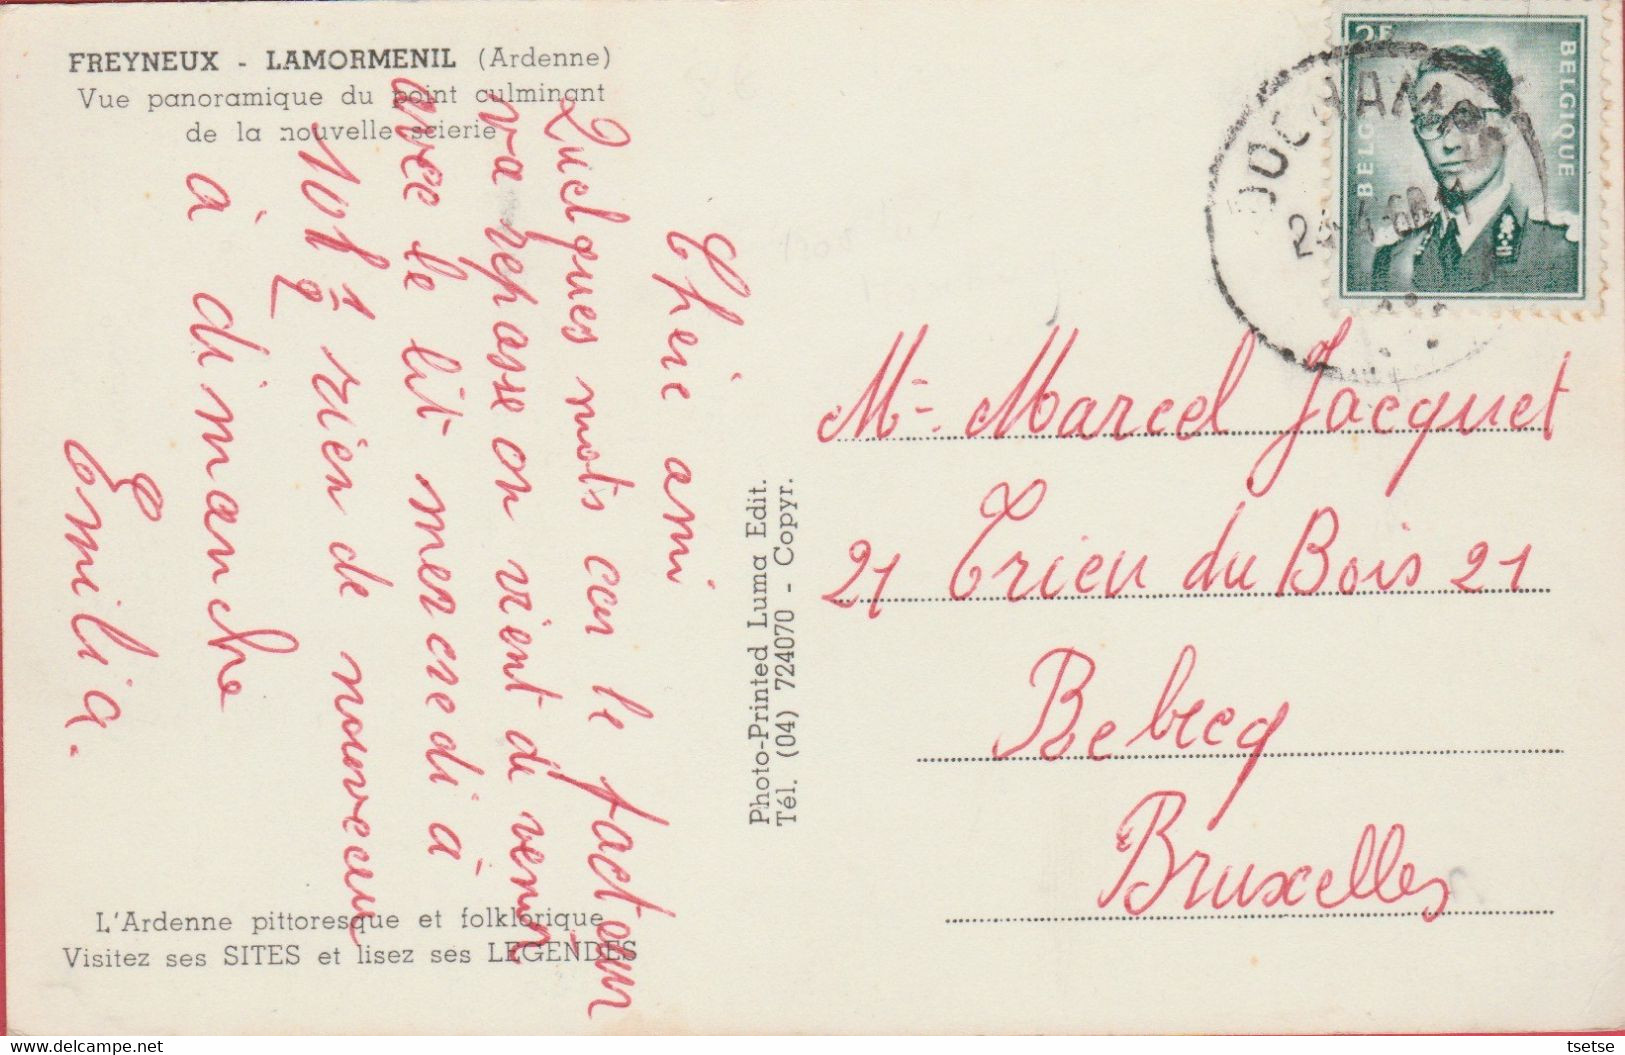 FREYNEUX - LAMORMENIL (Ardenne)
Vue panoramique du point culminant
de la nouvelle scierie
Chère ami
Quelques mots car le facteur
va repasse on vient di venir
avec le lit mercredi à
10h 1/2 rien de nouveau
à dimanche
Emilia.
L'Ardenne pittoresque et folklorique
Visitez ses SITES et lisez ses LEGENDES
Photo-Printed Luma Edit.
Tél. (04) 724070 - Copyr.
2F
BELGIQUE
M- Marcel Jacquet
21 Trieu du Bois 21
Rebecq
Bruxelles
tsetse